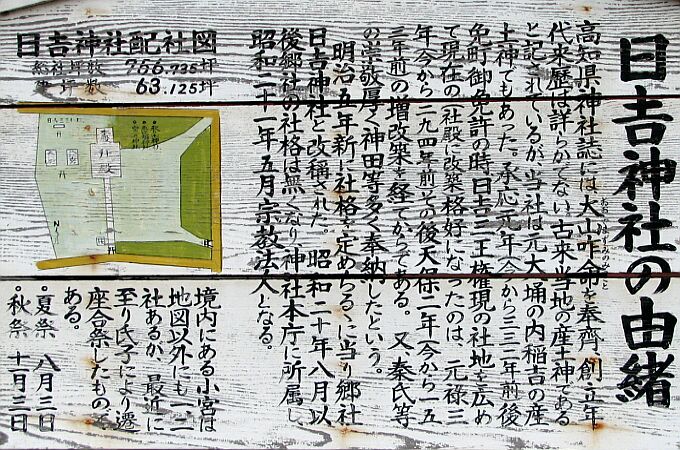 日吉神社の由緒
高知県神社誌には大山咋命を奉斉、創立年
おおやまくいのみこと
代来歴は詳らかでない、古来当地の産土神である
と記されているが当社は元大埇の内稲吉の産
土神でもあった。承応元年(今から三三二年前後
免町御免許の時日吉三王権現の社地を広め
て現在の(社殿に改築格好になったのは、元禄三
年(今から二九四年前)その後天保二年(今から一五
三年前)の増改築を経てからである。又、秦氏等
の崇敬厚く神田等多く奉納したという。
明治五年新に社格を定めらるゝに当り郷社
日吉神社と改称された。昭和二十年八月以
後郷社の社格は無くなり神社本庁に所属し
昭和二十一年五月宗教法人となる。
日吉神社配社図
総社坪数 756.735坪
建坪数 63.125坪
境内にある小宮は
地図以外にも一、二
社あるが、最近に
至り氏子により遷
座合祭したもので
ある。
・夏祭 八月三日
・秋祭 十一月三日